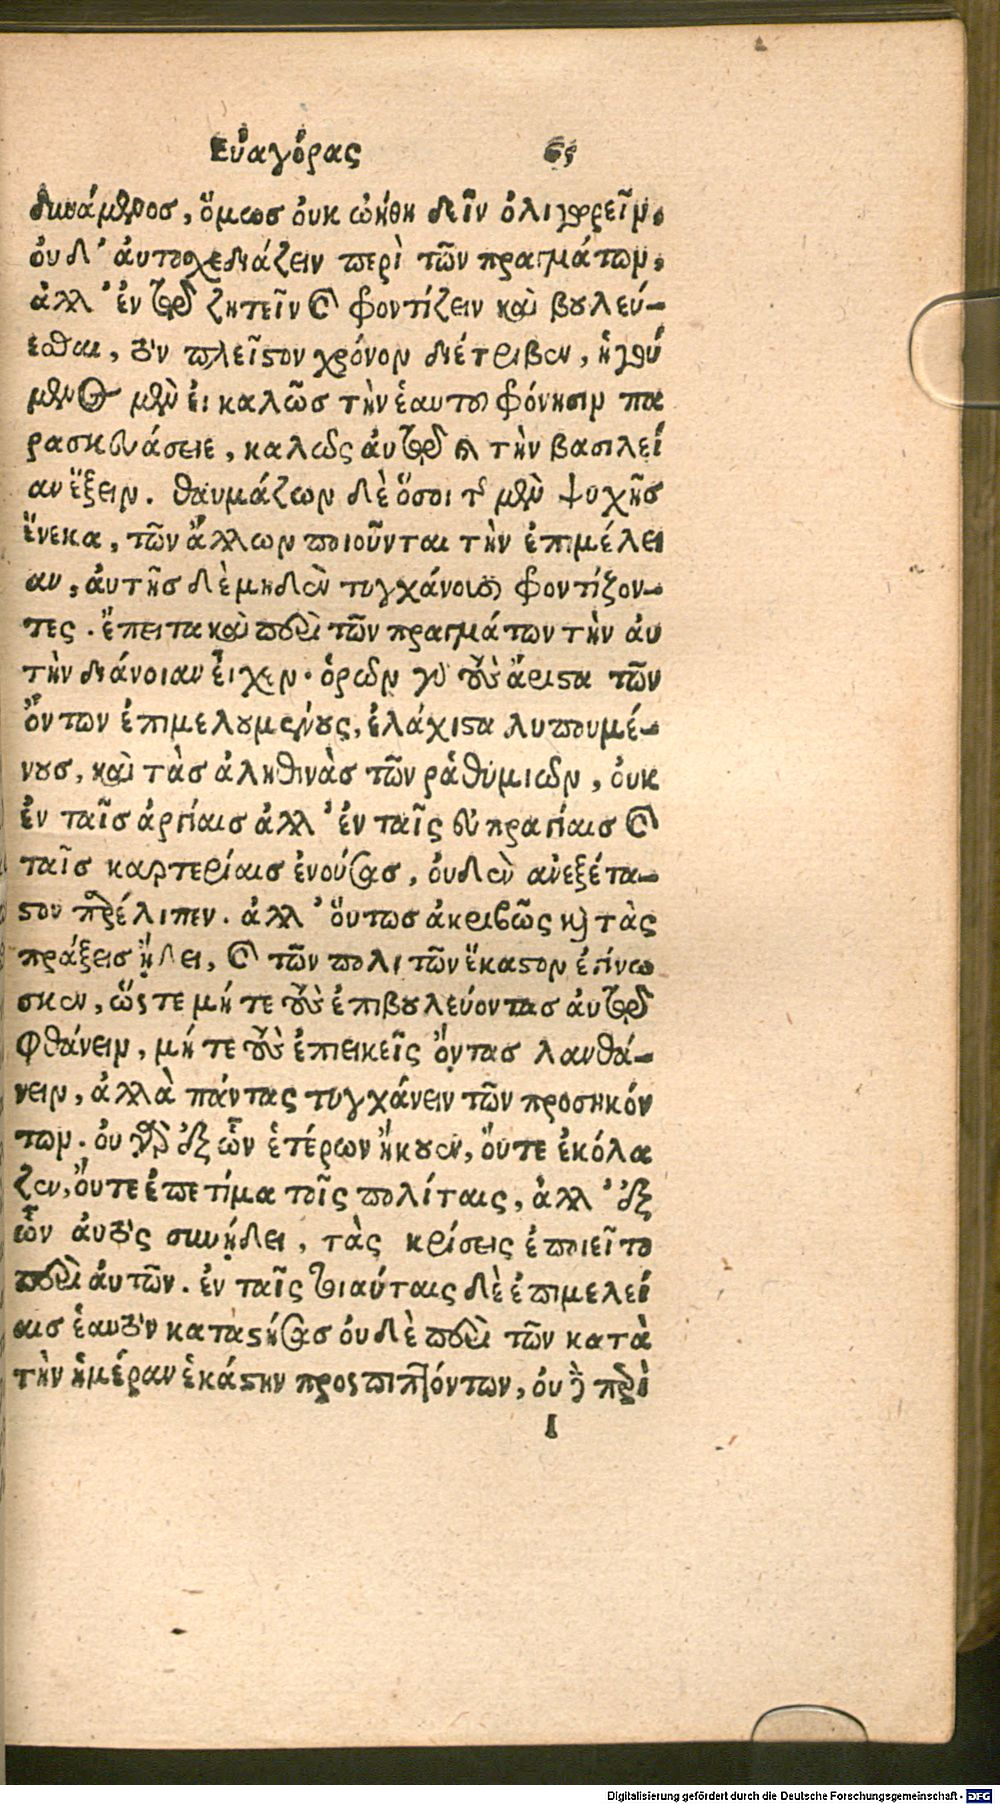 Εὐαγόρας 65
δυνάμενος, ὅμως ὀυκ ὠήθη δεῖν ὀλιγωρεῖν,
ὀυδ' ἀυτοσχεδιάζειν περὶ τῶν πραγμάτων,
ἀλλ' ἐν τῷ ζητεῖν καὶ φροντίζειν καὶ βουλεύ-
εσθαι, τὸν πλεῖστον χρόνον διέτριβεν, ἡγού
μενος μὲν ἐι καλῶς τὴν ἑαυτοῦ φρόνησιν πα
ρασκευάσειε, καλῶς ἀυτῷ καὶ τὴν βασιλεί
αν ἕξειν. θαυμάζων δὲ ὅσοι τῆς μὲν ψυχῆς
ἕνεκα, τῶν ἄλλων ποιοῦνται τὴν ἐπιμέλει
αν, ἀυτῆς δὲ μηδὲν τυγχάνουσι φροντίζον-
τες. ἔπειτα καὶ περὶ τῶν πραγμάτων τὴν ἀυ
τὴν διάνοιαν εἶχεν. ὁρῶν γὰρ τοὺς ἄριστα τῶν
ὄντων ἐπιμελουμένους, ἐλάχιστα λυπουμέ-
νους, καὶ τὰς ἀληθινὰς τῶν ῥαθυμιῶν, ὀυκ
ἐν ταῖς ἀργίαις ἀλλ' ἐν ταῖς εὐπραγίαις καὶ
ταῖς καρτερίαις ἐνούσας, ὀυδὲν ἀνεξέτα-
στον παρέλιπεν. ἀλλ' ὅυτως ἀκριβῶς καὶ τὰς
πράξεις ᾔδει, καὶ τῶν πολιτῶν ἕκαστον ἐγίνω
σκεν, ὥστε μήτε τοὺς ἐπιβουλεύοντας ἀυτῷ
φθάνειν, μήτε τοὺς ἐπιεικεῖς ὄντας λανθά-
νειν, ἀλλὰ πάντας τυγχάνειν τῶν προσηκόν
των. ὀυ γὰρ ἐξ ὧν ἑτέρων ἤκουεν, ὄυτε ἐκόλα
ζεν, ὄυτε ἐπετίμα τοῖς πολίταις, ἀλλ' ἐξ
ὧν ἀυτὸς συνῄδει, τὰς κρίσεις ἐποιεῖτο
περὶ ἀυτῶν. ἐν ταῖς τοιαύταις δὲ ἐπιμελεί
αις ἑαυτὸν καταστήσας ὀυδὲ περὶ τῶν κατὰ
τὴν ἡμέραν ἑκάστην προςπιπτόντων, ὀυδὲ περὶ
I
Digitalisierung gefördert durch die Deutsche Forschungsgemeinschaft - DFG